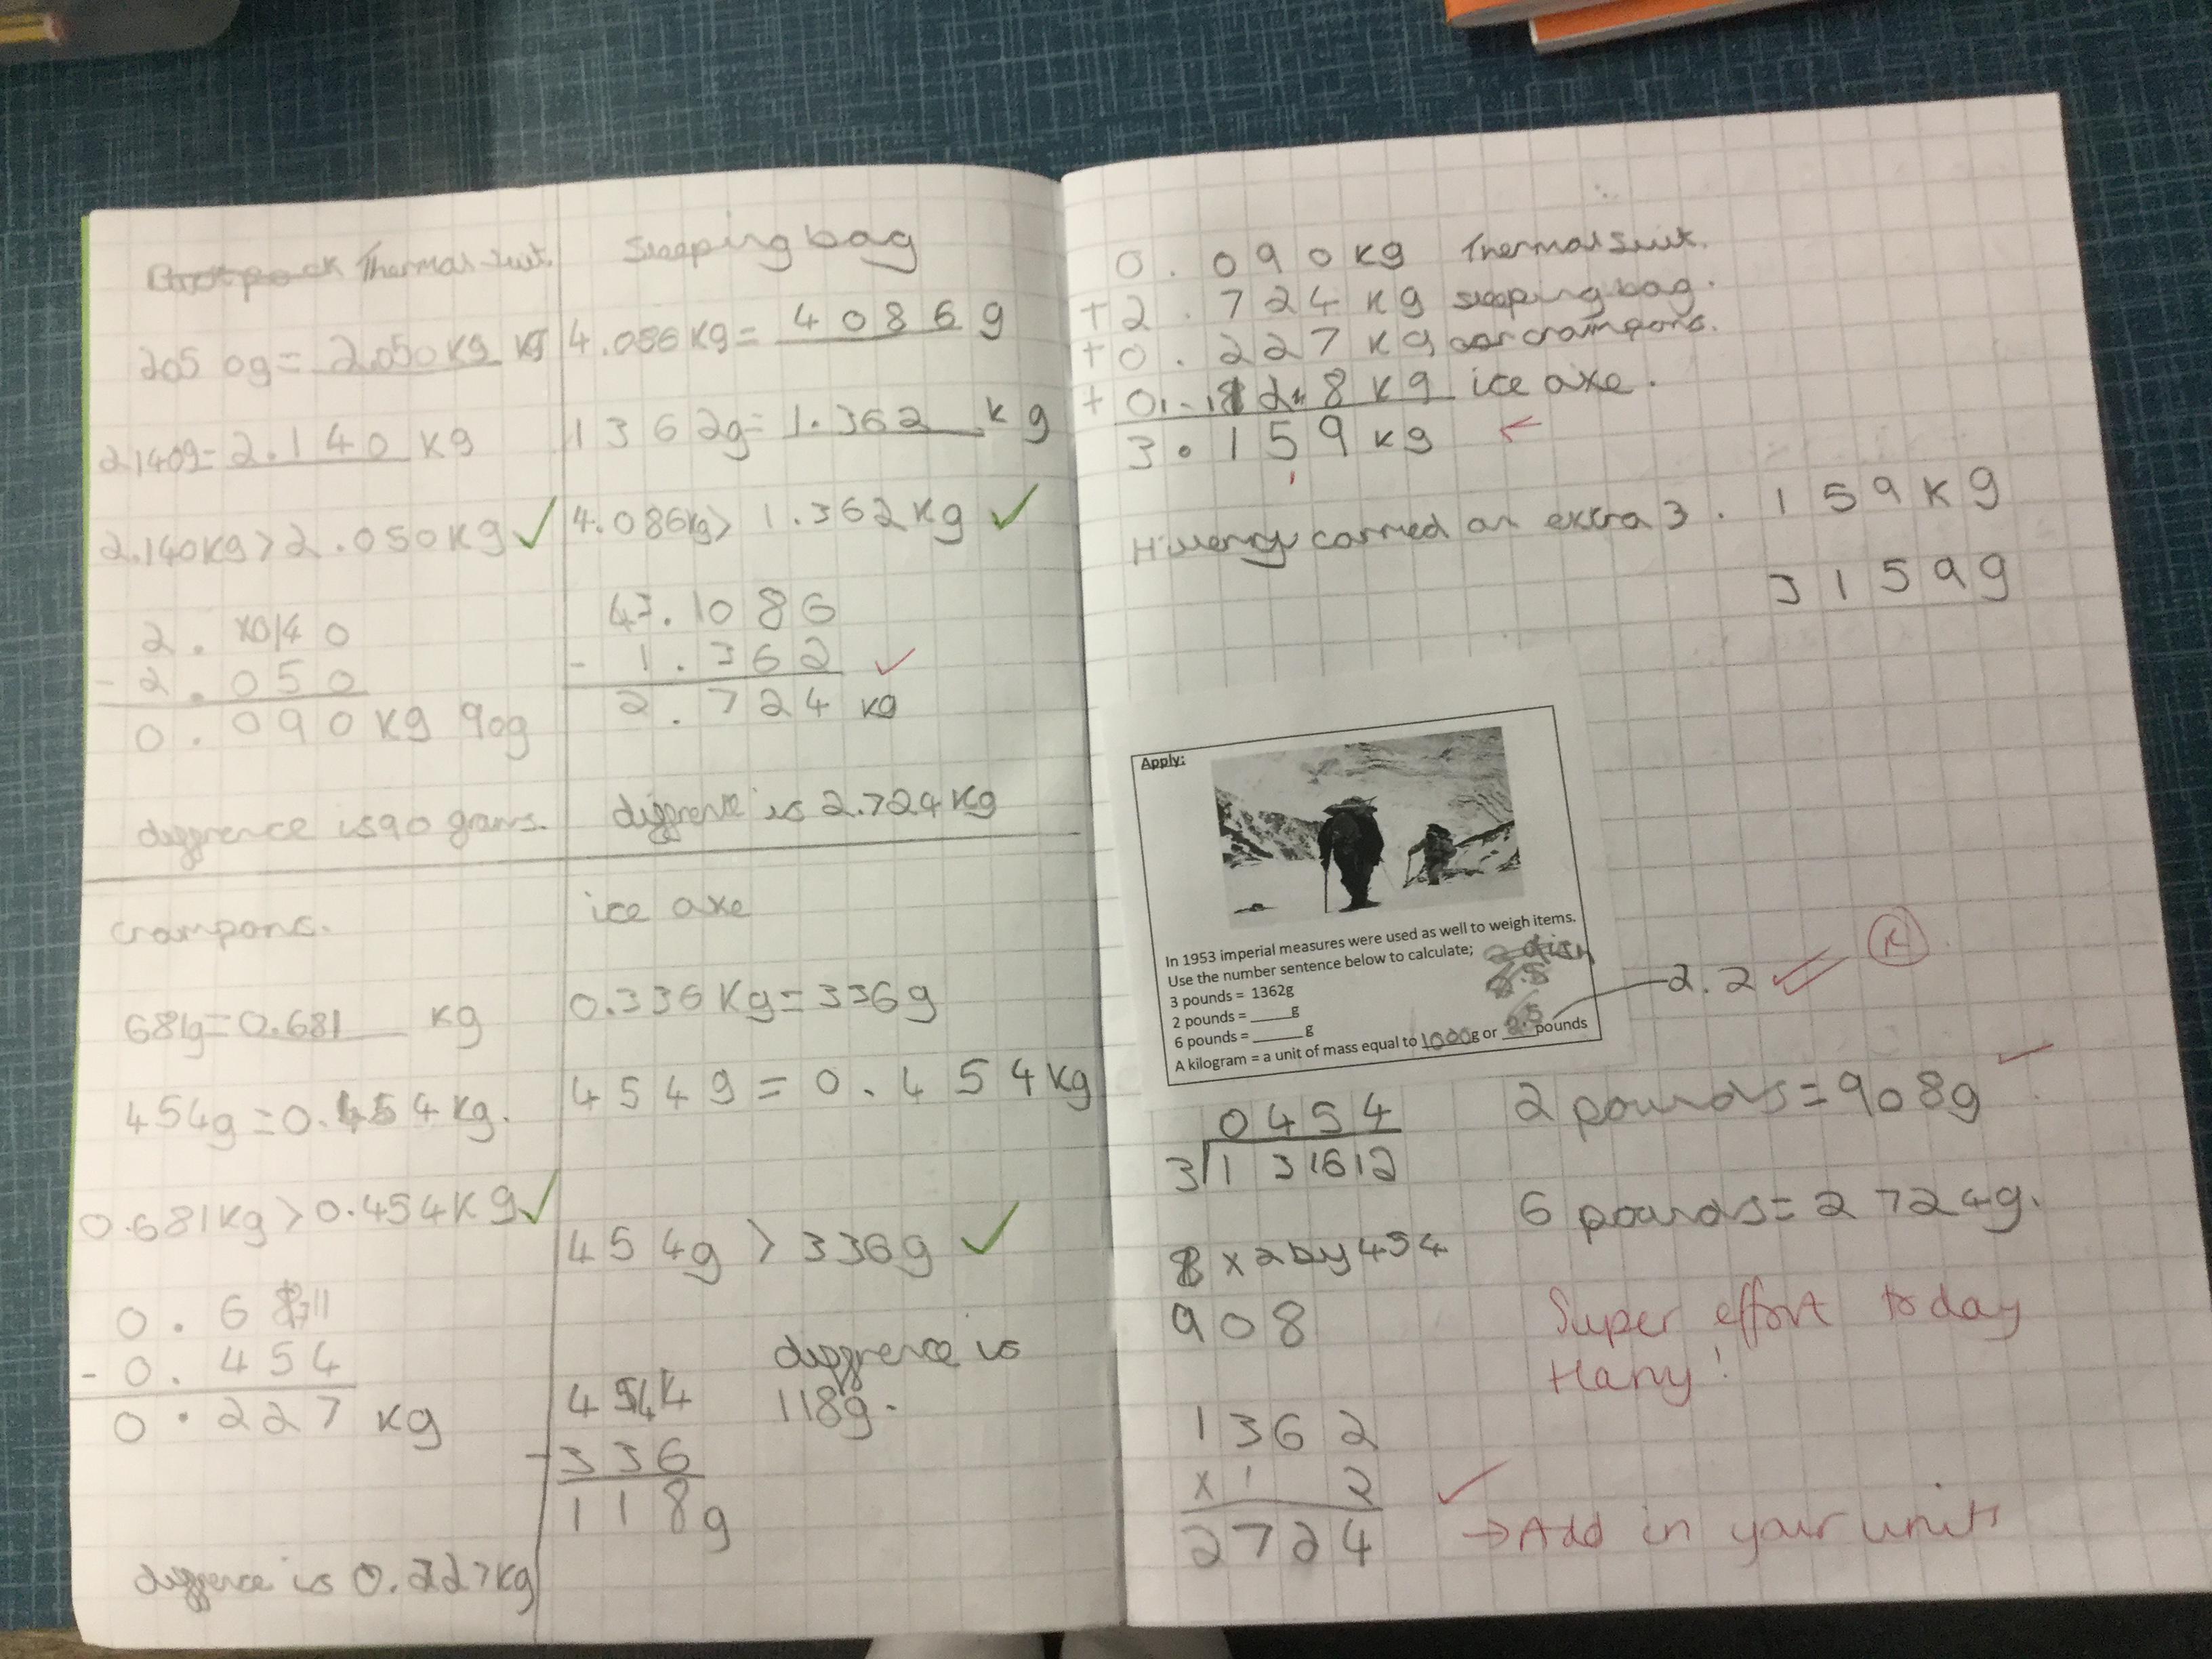 Thermal suit.
2050g = 2.050kg kg
2140g = 2.140 kg
2.140kg > 2.050kg ✓
2.1040
- 2.050
0.090 kg 90g
diffrence is 90 grams.
Sleeping bag
4.086kg = 4086 g
1362g = 1.362 kg
4.086kg > 1.362kg ✓
43.1086
- 1.362
2.724 kg
diffrence is 2.724kg
crampons.
681g = 0.681 kg
454g = 0.454kg.
0.681kg > 0.454kg ✓
0.68711
- 0.454
0.227 kg
diffrence is 0.227kg
ice axe
0.336kg = 336g
454g = 0.454kg
454g > 336g ✓
45414
- 336
118g
diffrence is
118g.
0.090kg Thermal suit.
+2.724 kg sleeping bag.
+0.227 kg crampons.
+ 8 kg ice axe.
3.159 kg
carried an extra 3.159kg
3159g
Apply:
In 1953 imperial measures were used as well to weigh items.
Use the number sentence below to calculate;
3 pounds = 1362g
2 pounds = ______g
6 pounds = ______ g
A kilogram = a unit of mass equal to 1000g or 2.5 pounds
2.2
0454
3 131612
x2 by 454
908
1362
x 2
2724
2 pounds = 908g
6 pounds = 2724g.
Super effort today
Harry!
→ Add in your units